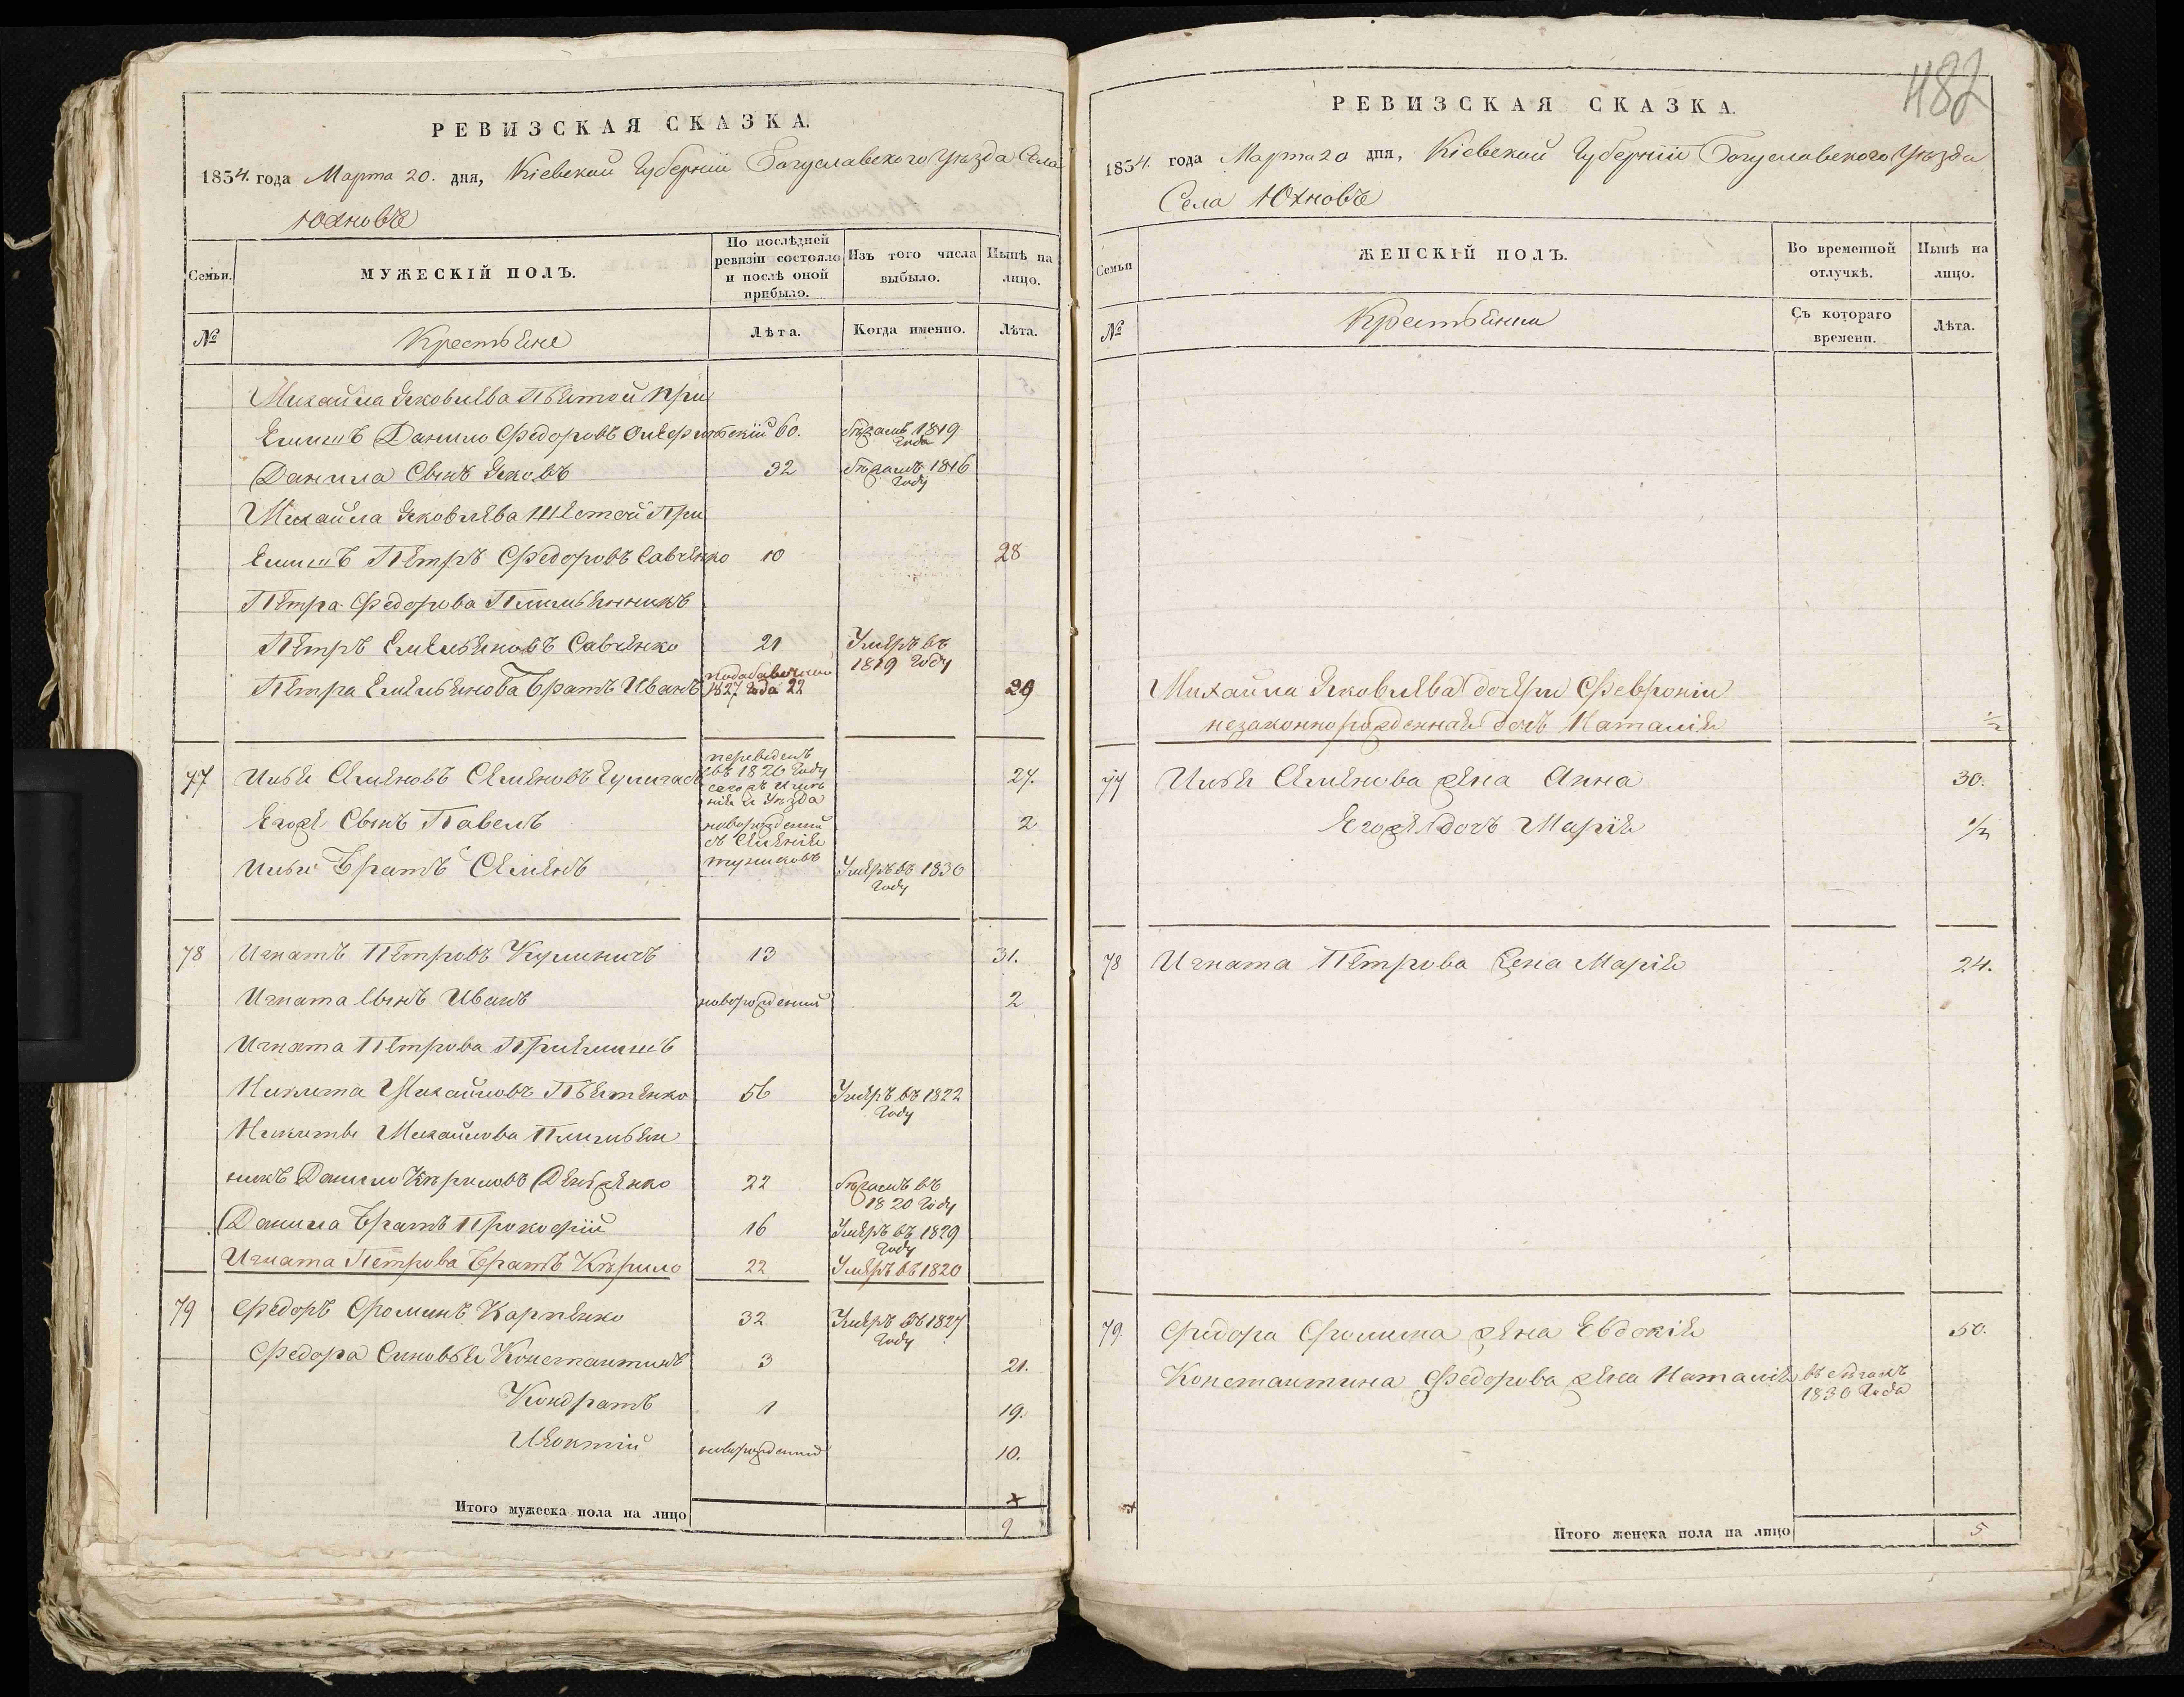 РЕВИЗСКАЯ СКАЗКА.
1834. года Марта 20. дня, Кіевской Губерніи Богуславского Уѣзда Села
Юхновъ
Семьи.
МУЖЕСКІЙ ПОЛЪ.
По послѣдней ревизіи состояло и послѣ оной прибыло.
Изъ того числа выбыло.
Нынѣ на лицо.
№
Крестьяне
Лѣта.
Когда именно.
Лѣта.
Михайла Яковлева Пятой При
емишъ Данило Федоровъ 60. бѣжалъ 1819 года
Данила Сынъ Яковъ 32 бѣжалъ 1816 году
Михайла Яковлева Шестой При
емишъ Петръ Федоровъ Савченко 10 28
Петра Федорова Племянникъ
Петръ Емельяновъ Савченко 21 Умеръ въ 1819 году
Петра Емельянова братъ Иванъ 1827 года 22 29
77 Илья Семеновъ Семеновъ переведенъ въ 1826 году 24.
Его же Сынъ Павелъ новорожденный 2
Ильи братъ Семенъ Умеръ въ 1830 году
78 Игнатъ Петровъ Кулиничъ 13 31.
Игната Сынъ Иванъ новорожденный 2
Игната Петрова Приемишъ
Никита Михайловъ Пятенко 56 Умеръ въ 1822 году
Никиты Михайлова Племян
никъ Данило Кириловъ 22 бѣжалъ въ 1820 году
Данила братъ Прокофій 16 Умеръ въ 1829 году
Игната Петрова братъ Кирило 22 Умеръ въ 1820
79 Федоръ Фоминъ Карпенко 32 Умеръ въ 1827 году
Федора Сыновья Константинъ 3 21.
Кондратъ 1 19.
новорожденный 10.
Итого мужеска пола на лицо 9
482
РЕВИЗСКАЯ СКАЗКА.
1834. года Марта 20 дня, Кіевской Губерніи Богуславского Уѣзда
Села Юхновъ
Семьи
ЖЕНСКІЙ ПОЛЪ.
Во временной отлучкѣ.
Нынѣ на лицо.
№
Крестьянки
Съ котораго времени.
Лѣта.
Михайла Яковлева дочери Февроніи
незаконнорожденная дочь Наталія 1/2
77 Ильи Семенова жена Анна 30.
Его же дочь Марія 1/2
78 Игната Петрова жена Марія 24.
79. Федора Фомина жена Евдокія 50.
Константина Федорова жена Наталія въ бѣгахъ 1830 года
Итого женска пола на лицо 5